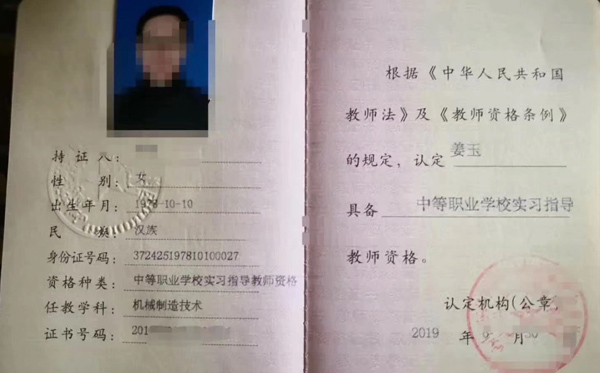 持 证 人:
性 别: 女
出生年月: 1978-10-10
民 族: 汉族
身份证号码: 372425197810100027
资格种类: 中等职业学校实习指导教师资格
任教学科: 机械制造技术
证书号码: 201
根据《中华人民共和国
教师法》及《教师资格条例》
的规定,认定 姜玉
具备 中等职业学校实习指导
教师资格。
认定机构(公章
2019 年 9 月 30